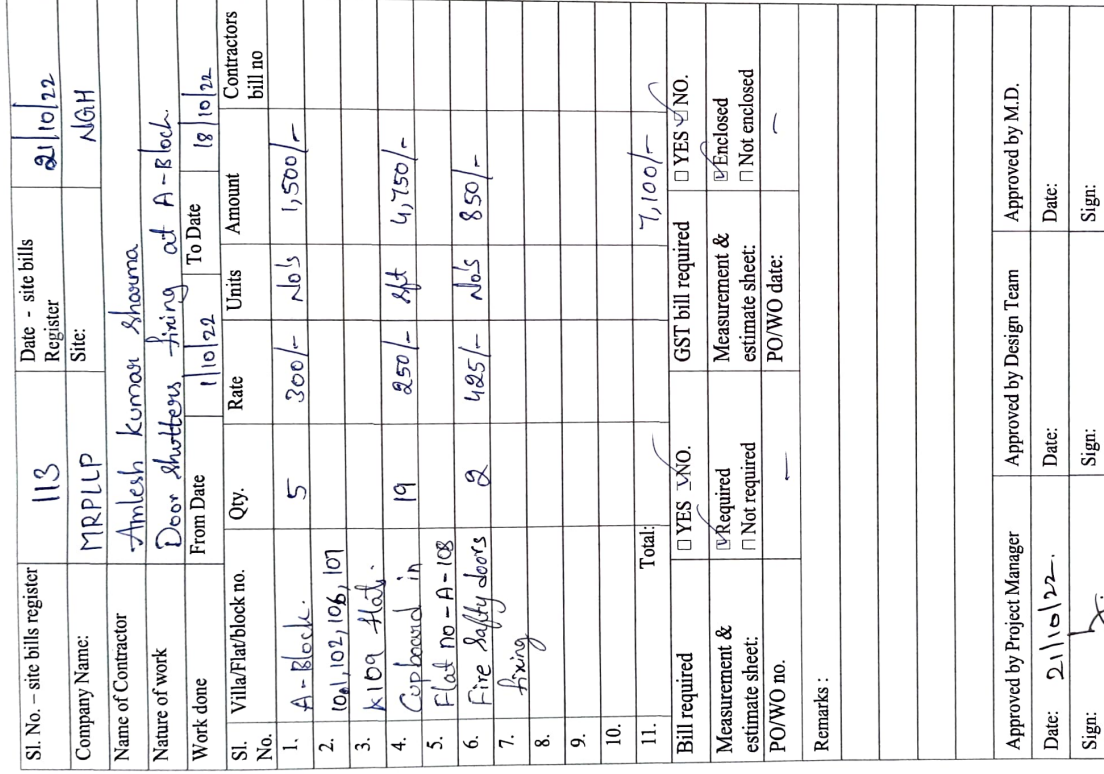 Sl. No. – site bills register 113 Date - site bills Register 21/10/22
Company Name: MRPLLP Site: NGH
Name of Contractor Amlesh kumar sharma
Nature of work Door shutters fixing at A-Block.
Work done From Date 1/10/22 To Date 18/10/22
Sl. No. Villa/Flat/block no. Qty. Rate Units Amount Contractors bill no
1. A-Block. 5 300/- No's 1,500/-
2. 101, 102, 106, 107
3. x109 flats.
4. Cupboard in 19 250/- sft 4,750/-
5. Flat no-A-108
6. Fire Safty doors 2 425/- No's 850/-
7. fixing
8.
9.
10.
11. Total: 7,100/-
Bill required □ YES ☑ NO. GST bill required □ YES ☑ NO.
Measurement & estimate sheet: ☑ Required □ Not required Measurement & estimate sheet: ☑ Enclosed □ Not enclosed
PO/WO no. — PO/WO date: —
Remarks :
Approved by Project Manager Approved by Design Team Approved by M.D.
Date: 21/10/22. Date: Date:
Sign: Sign: Sign: